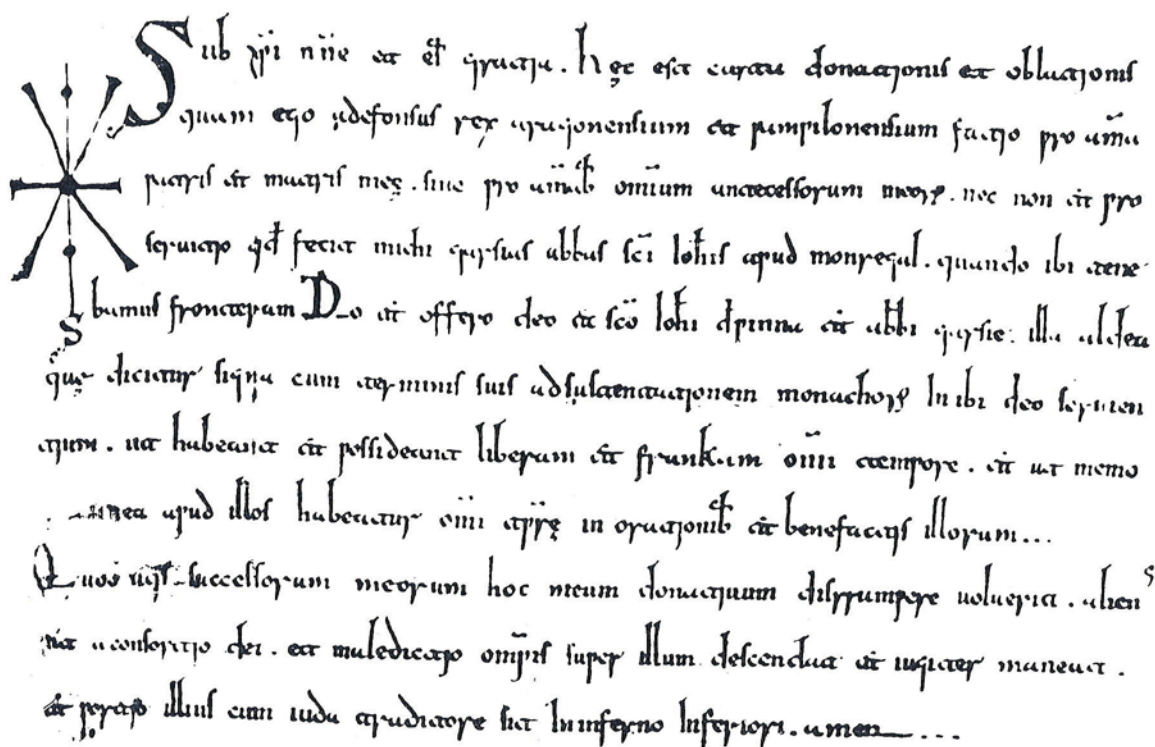 Sub xp̄i nn̄e et ei᷒ gratia. hęc est carta donationis et oblationis
quam ego adefonsus rex aragonensium et pampilonensium facio pro aīma
patris et matris meę. siue pro aīmab᷒ omīum antecessorum meorꝝ. nec non et pro
seruitio qd̄ fecit michi garsias abbas scī ioħis apud monregal. quando ibi tene
bamus fronteram Do et offero deo et scō ioħi d̄ pinna et abbi garsie: illa aldea
quę dicitur signa cum terminis suis ad sustentationem monachorꝝ In ibi deo seruien
tium. ut habeant et possideant liberam et frankam om̄i tempore. et ut memo
mea apud illos habeatur om̄i tp̄rę in orationib᷒ et benefactis illorum...
successorum meorum hoc meum donatiuum disrrumpere uoluerit. alien᷒
sit a consortio dei. et maledictio omp̄tis super illum descendat et iugiter maneat.
et portio illius cum iuda traditore sit In inferno Inferiori. amen ...